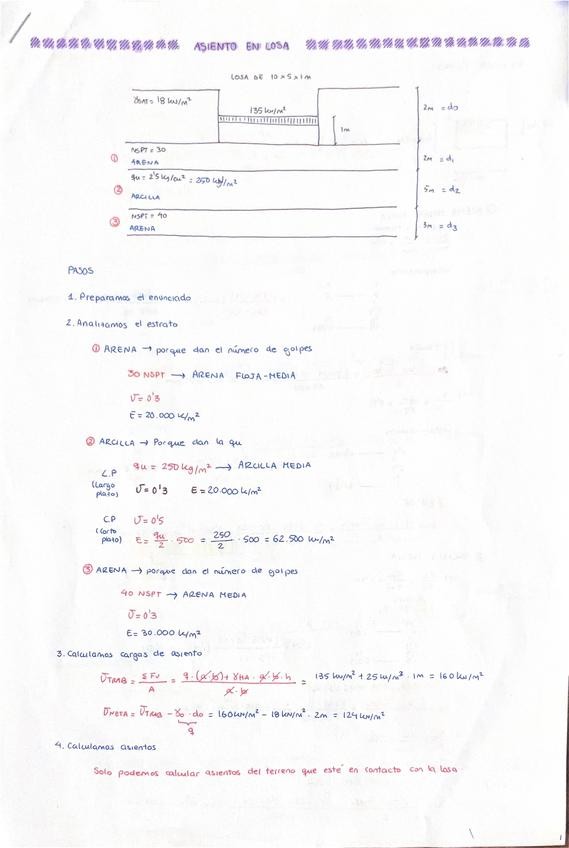 ASIENTO EN LOSA
LOSA DE 10 x 5 x 1m
γSAT = 18 kN/m³
135 kN/m²
1m
2m = d0
① NSPT = 30
ARENA
2m = d1
② qu = 2'5 kg/cm² = 250 kN/m²
ARCILLA
5m = d2
③ NSPT = 40
ARENA
3m = d3
PASOS
1. Preparamos el enunciado
2. Analizamos el estrato
① ARENA → porque dan el número de golpes
30 NSPT → ARENA FLOJA-MEDIA
ν = 0'3
E = 20.000 k/m²
② ARCILLA → Porque dan la qu
L.P (Largo plazo)
qu = 250 kg/m² → ARCILLA MEDIA
ν = 0'3 E = 20.000 k/m²
C.P (Corto plazo)
ν = 0'5
E = qu/2 · 500 = 250/2 · 500 = 62.500 kN/m²
③ ARENA → porque dan el número de golpes
40 NSPT → ARENA MEDIA
ν = 0'3
E = 30.000 k/m²
3. Calculamos cargas de asiento
σTRAB = ΣFv/A = q · (a · b) + γHA · a · b · h / a · b = 135 kN/m² + 25 kN/m³ · 1m = 160 kN/m²
σNETA = σTRAB - γ0 · d0 = 160 kN/m² - 18 kN/m³ · 2m = 124 kN/m²
q
4. Calculamos asientos
Solo podemos calcular asientos del terreno que esté en contacto con la losa
1